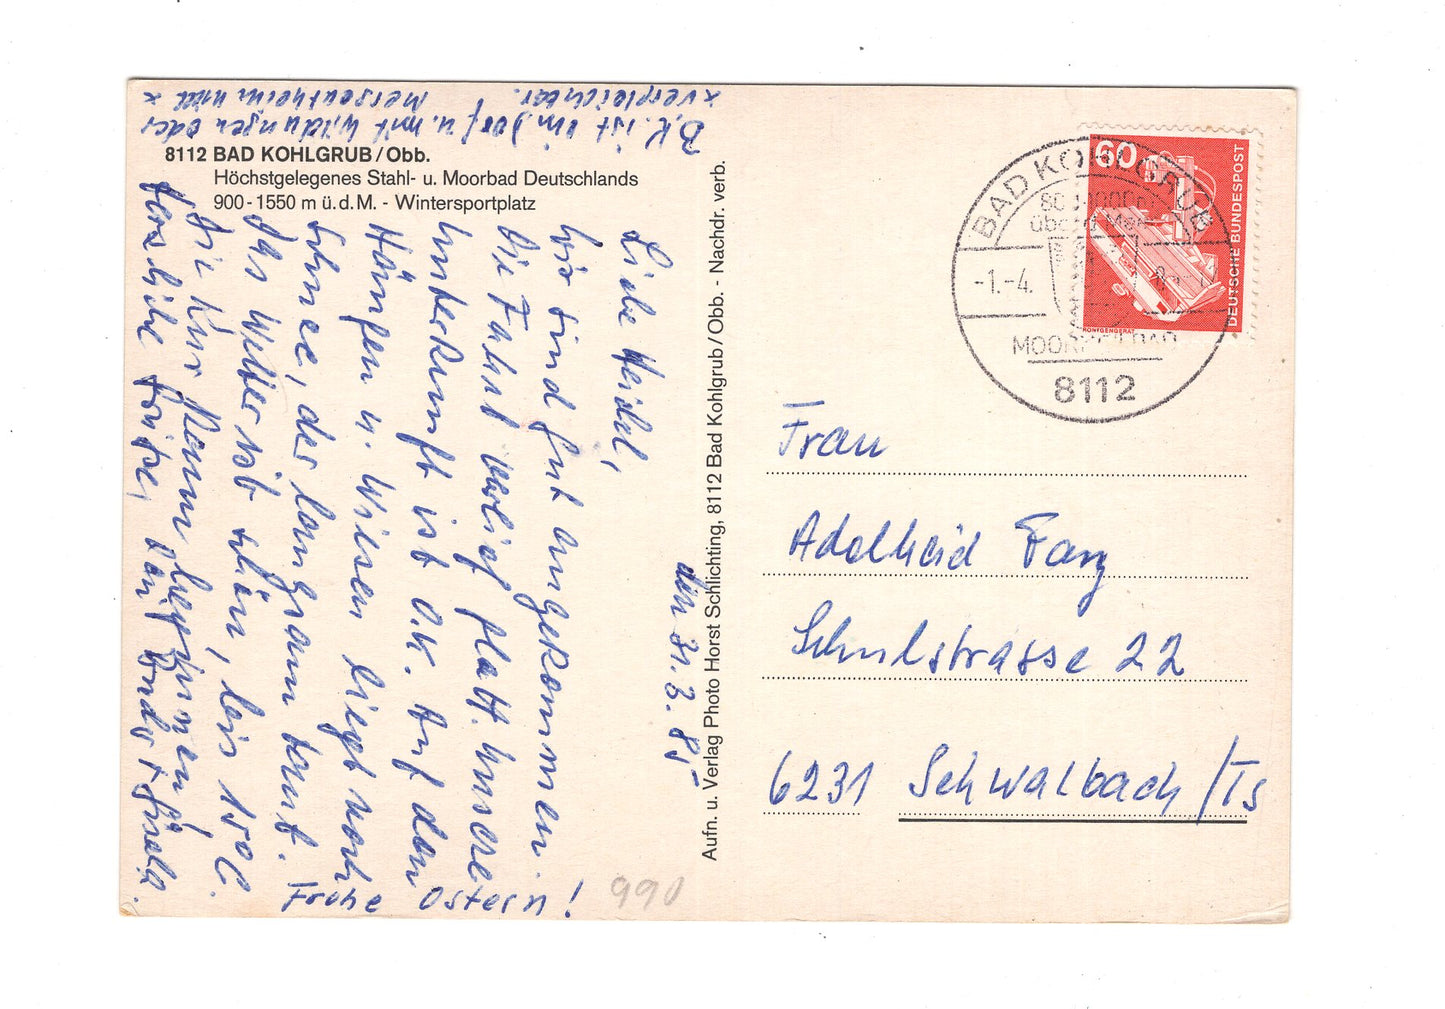 8112 BAD KOHLGRUB/Obb.
Höchstgelegenes Stahl- u. Moorbad Deutschlands
900-1550 m ü.d.M. - Wintersportplatz
den 31.3.85
Liebe Heidel,
wir sind gut angekommen.
Die Fahrt verlief glatt. Unsere
Unterkunft ist O.K. Auf den
Hängen u. Wiesen liegt noch
Schnee, der langsam taut.
Das Wetter ist schön, bis 15°C.
Die Kur kann beginnen!
Herzliche Grüsse, Dein + Gisela.
Frohe Ostern!
B.K. ist ein Dorf u. mit Wildungen oder
x Mergentheim nicht
x vergleichbar.
Aufn. u. Verlag Photo Horst Schlichting, 8112 Bad Kohlgrub/Obb. - Nachdr. verb.
BAD KOHLGRUB
über d. Meer
-1.-4.
8112
60
DEUTSCHE BUNDESPOST
RÖNTGENGERÄT
Frau
Adelheid
Schulstrasse 22
6231 Schwalbach/Ts
990